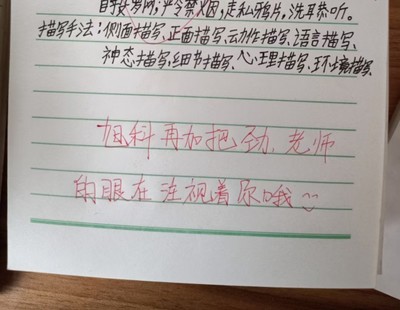 自投罗网,严令禁烟,走私鸦片,洗耳恭听。
描写手法:侧面描写、正面描写、动作描写、语言描写、
神态描写、细节描写、心理描写、环境描写、
再加把劲,老师
的眼在注视着你哦